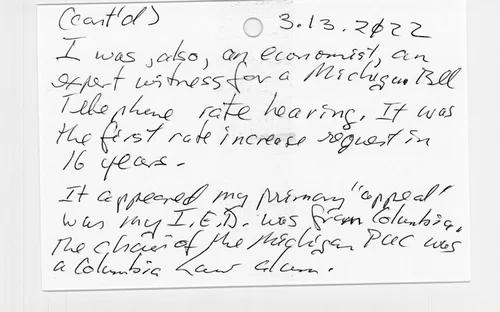 (cont'd) 3.13.2022
I was, also, an economist, an
expert witness for a Michigan Bell
Telephone rate hearing. It was
the first rate increase request in
16 years.
It appeared my primary "appeal"
was my I.E.D. was from Columbia.
The chair of the Michigan PUC was
a Columbia Law alum.